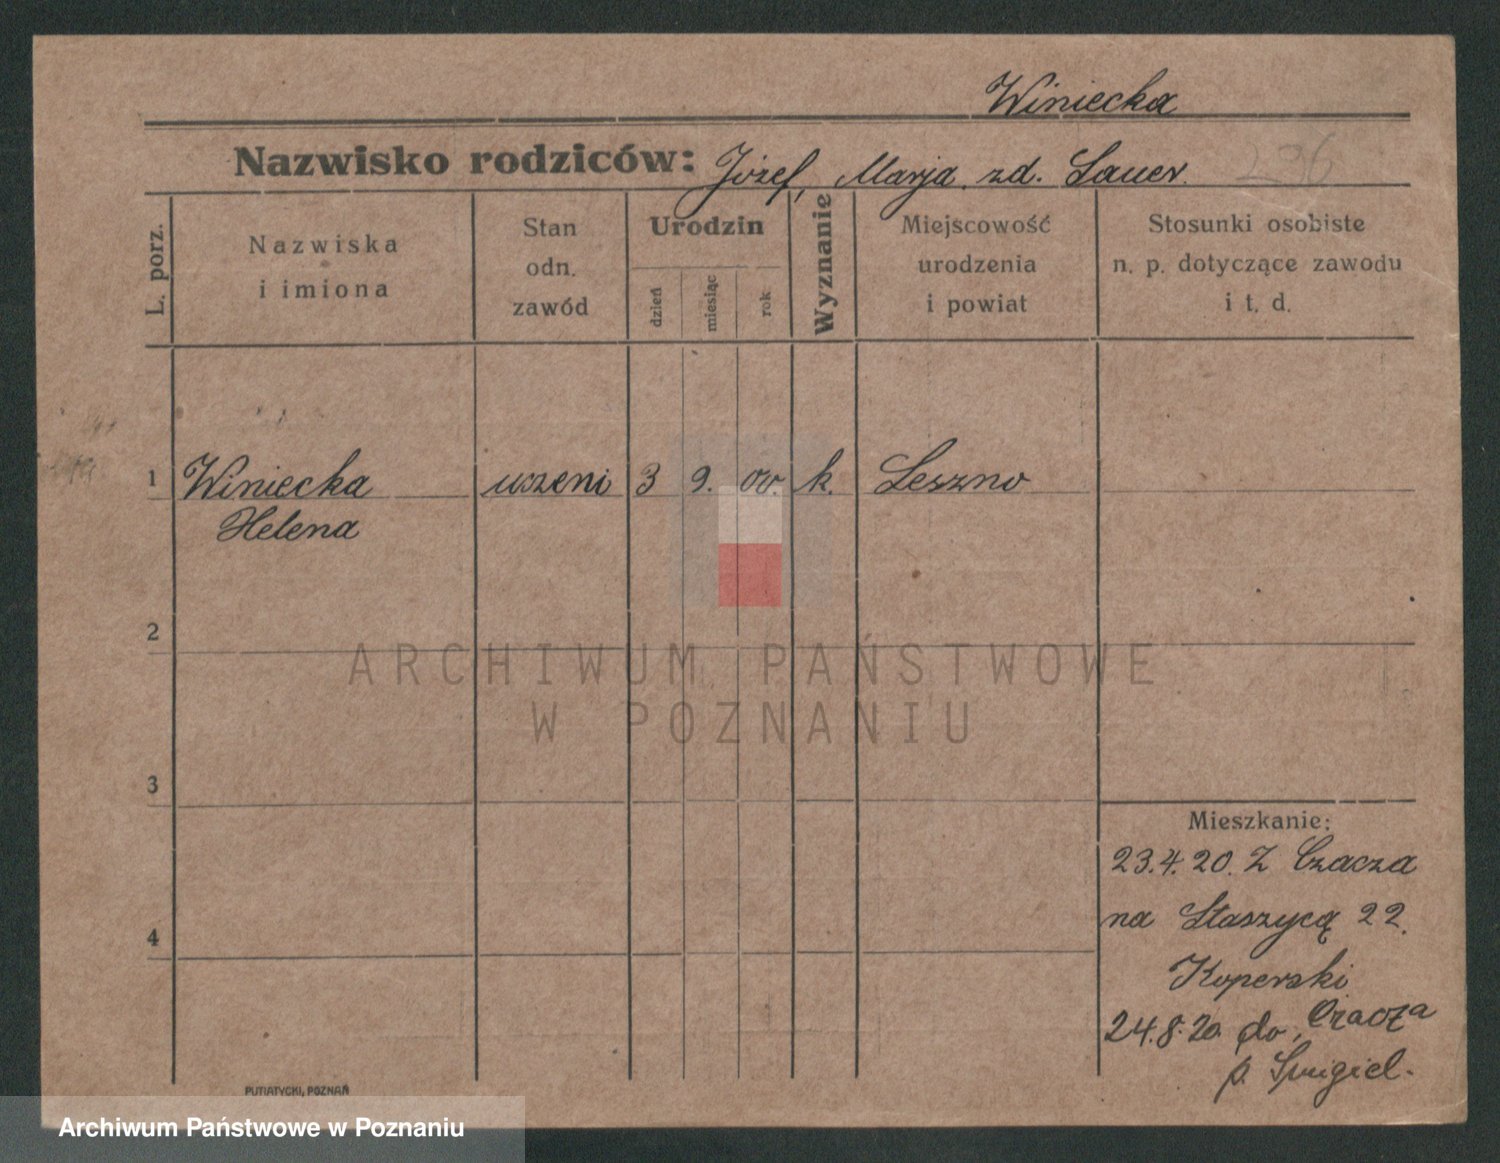 Winiecka
Nazwisko rodziców: Józef, Marja zd. Sauer. 296
L. porz.
Nazwiska
i imiona
Stan
odn.
zawód
Urodzin
dzień
miesiąc
rok
Wyznanie
Miejscowość
urodzenia
i powiat
Stosunki osobiste
n. p. dotyczące zawodu
i t. d.
1 Winiecka uczeni 3 9. 00. k. Leszno
Helena
2
3
4
Mieszkanie:
23.4.20. Z Czacza
na Staszycą 22.
Koperski
24.8.20. do Czacza
p. Śmigiel.
PUTIATYCKI, POZNAŃ
ARCHIWUM PAŃSTWOWE
W POZNANIU
Archiwum Państwowe w Poznaniu